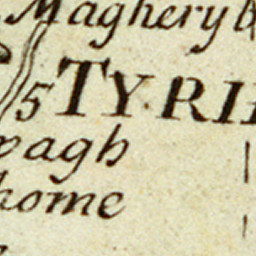 Maghery b
5 TYRI
vagh
home